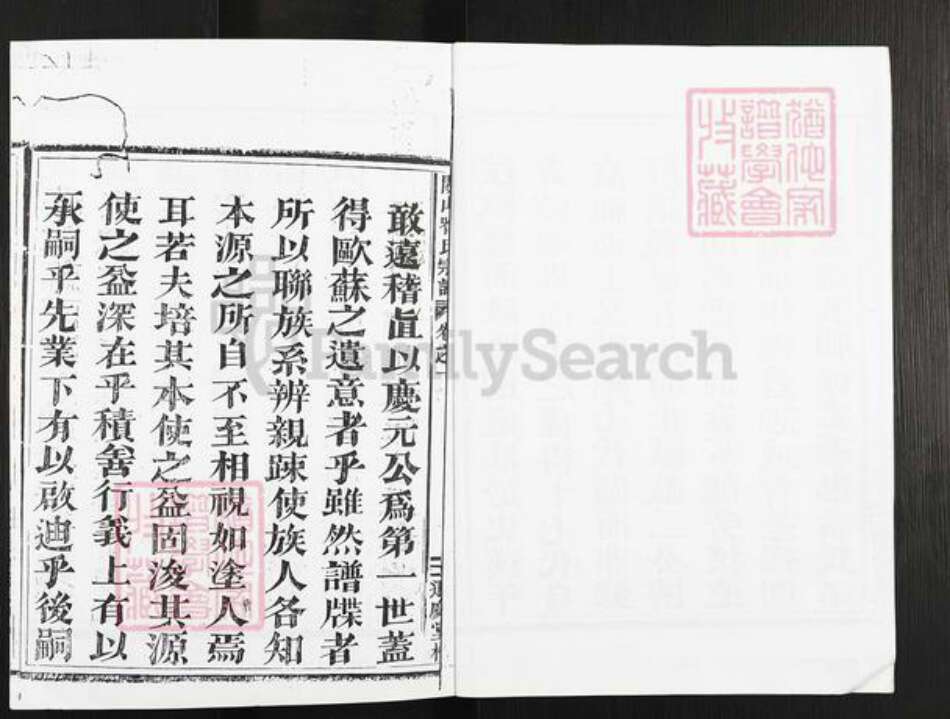 猶他家
譜學會
收藏
氏宗譜 卷之
敢遠稽直以慶元公爲第一世蓋
得歐蘇之遺意者乎雖然譜牒者
所以聯族系辨親踈使族人各知
本源之所自不至相視如塗人焉
耳若夫培其本使之益固浚其源
使之益深在乎積善行義上有以
承嗣乎先業下有以啟迪乎後嗣
FamilySearch